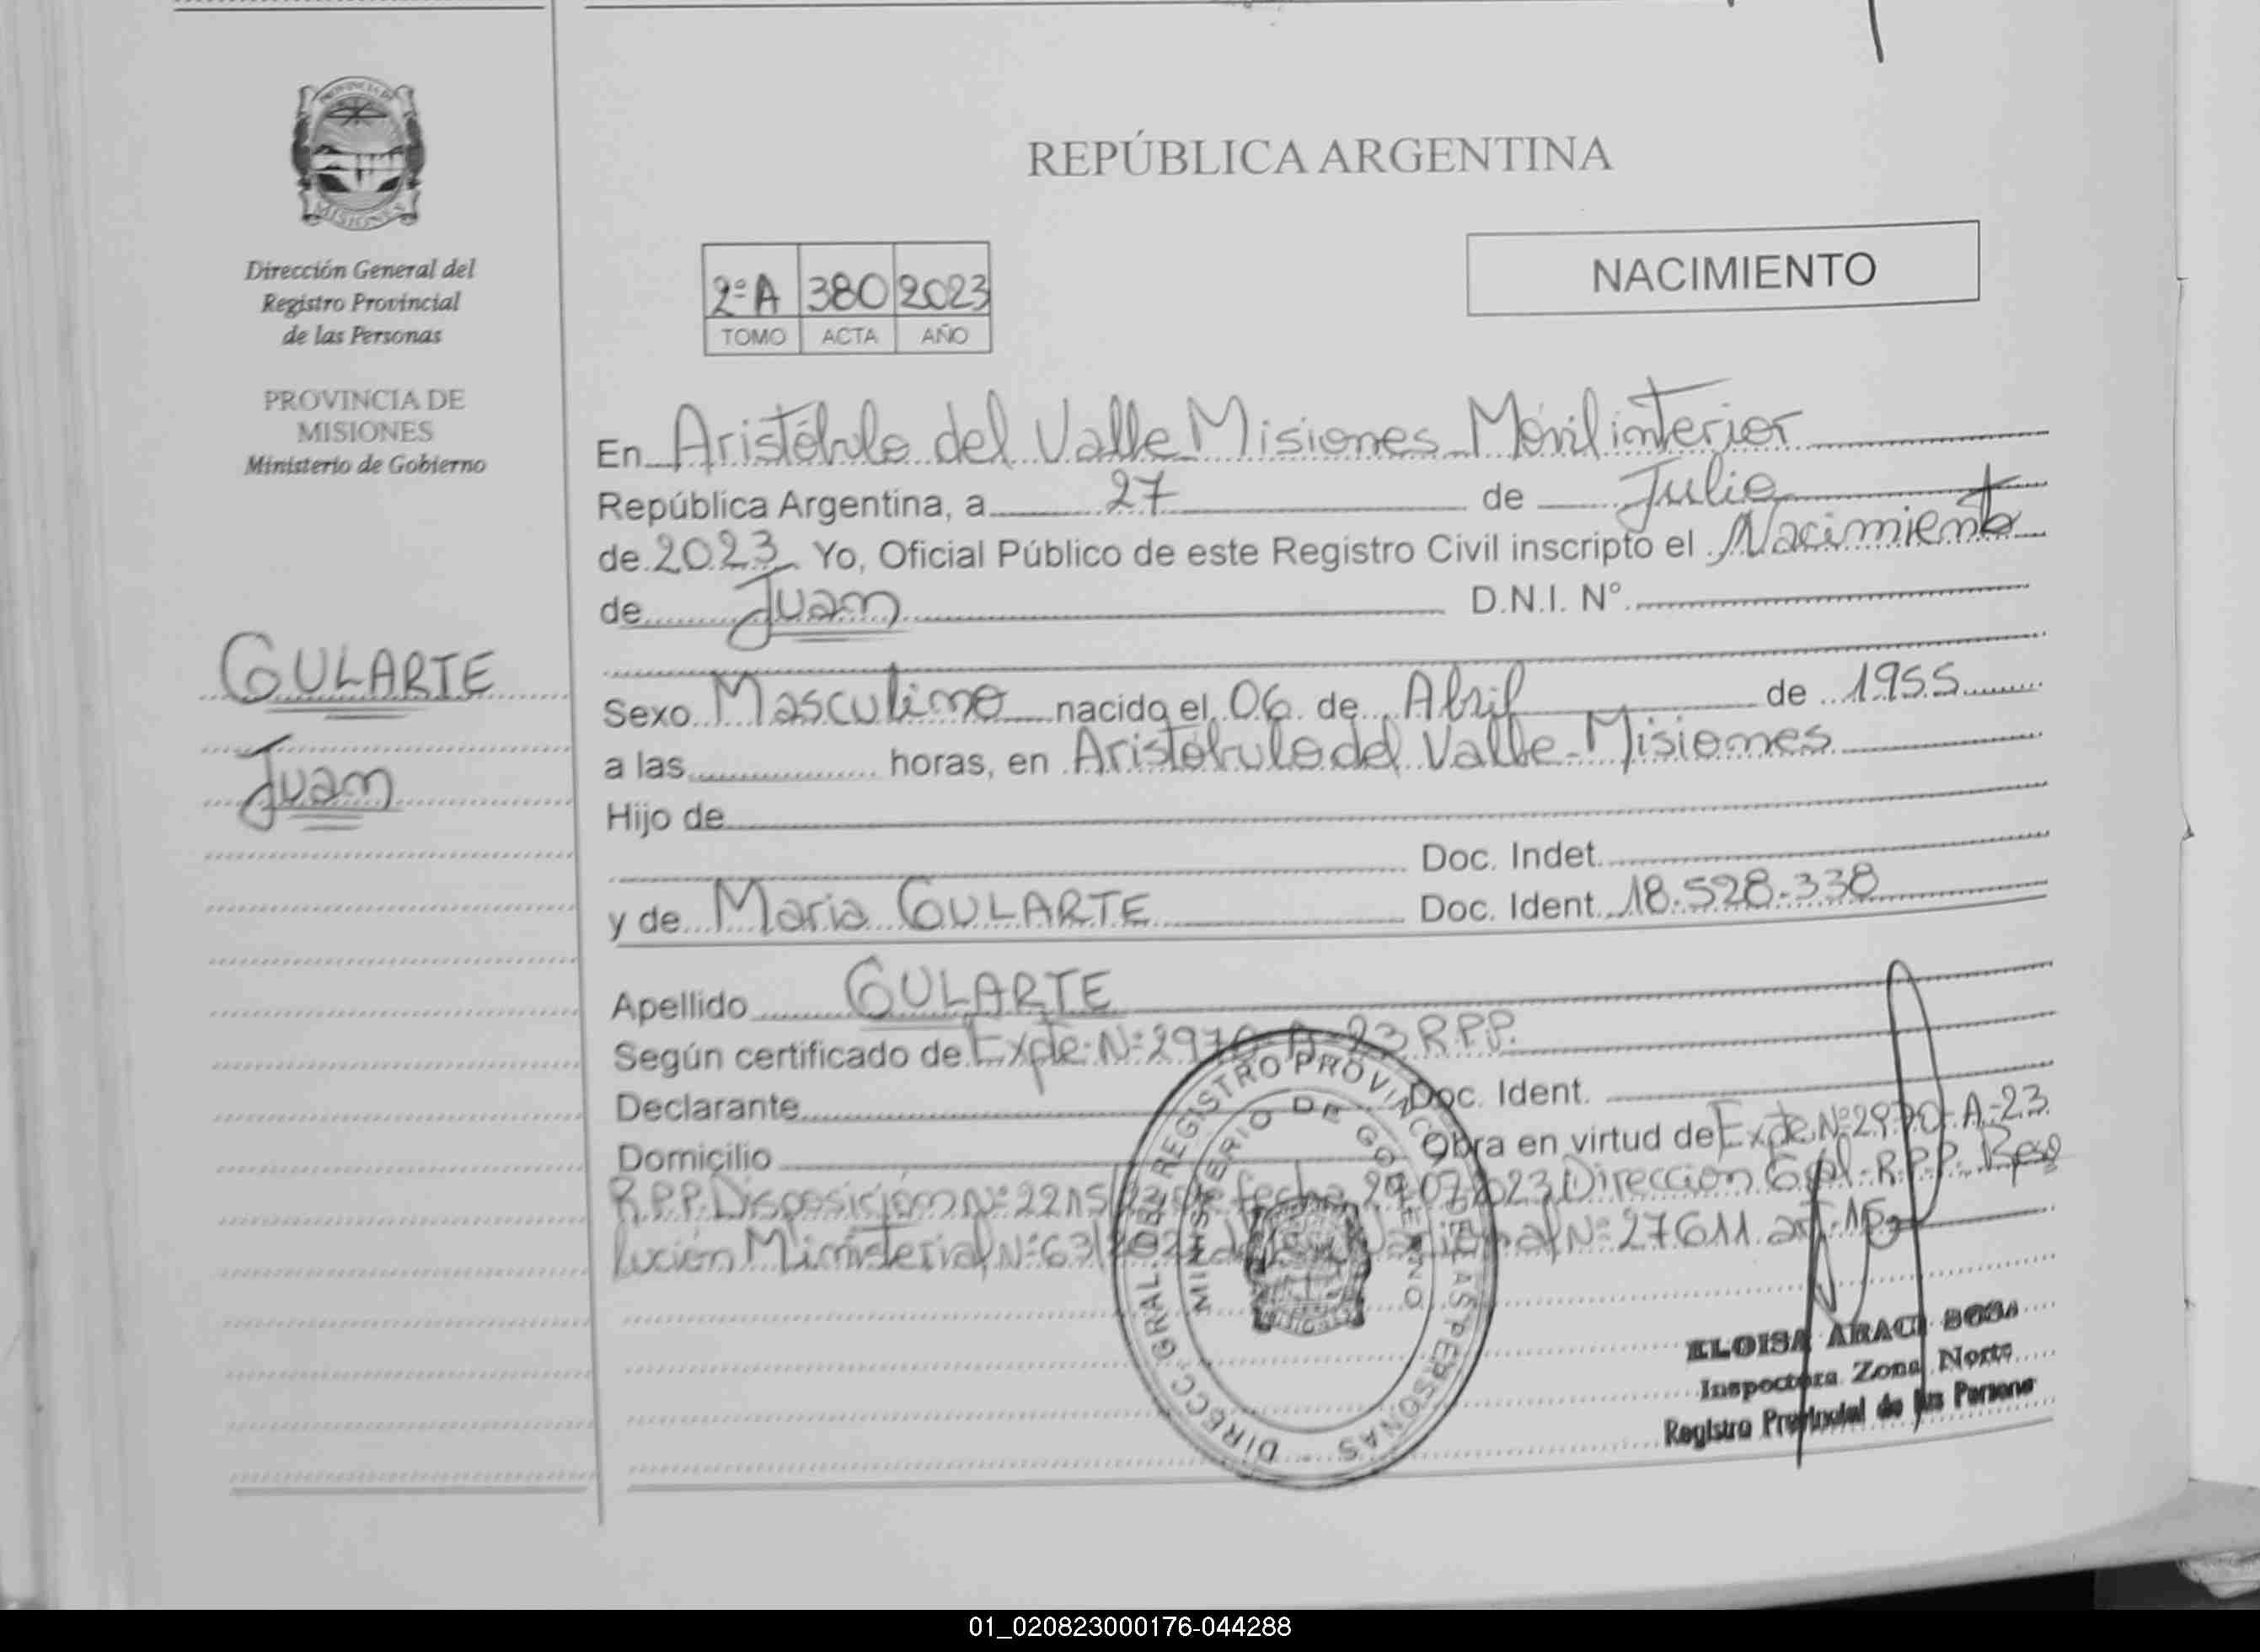 PROVINCIA DE
MISIONES
Dirección General del
Registro Provincial
de las Personas
PROVINCIA DE
MISIONES
Ministerio de Gobierno
GULARTE
Juan
REPÚBLICA ARGENTINA
NACIMIENTO
2º A 380 2023
TOMO ACTA AÑO
En Aristóbulo del Valle Misiones Móvil interior
República Argentina, a 27 de Julio
de 2023 Yo, Oficial Público de este Registro Civil inscripto el Nacimiento
de Juan D.N.I. N°
Sexo Masculino nacido el 06 de Abril de 1955
a las horas, en Aristóbulo del Valle - Misiones
Hijo de
Doc. Indet.
y de Maria GULARTE Doc. Ident. 18.528.338
Apellido GULARTE
Según certificado de Expte. Nº 2970-A-23 R.P.P.
Declarante Doc. Ident.
Domicilio Obra en virtud de Expte Nº 2970-A-23
R.P.P. Disposición Nº 2215 fecha 07 2023 Dirección Gral. R.P.P. Reso
lución Ministerial Nº 63/202 Nacional Nº 27611 art. 15
DIRECC. GRAL. DEL REGISTRO PROVINCIAL DE LAS PERSONAS
MINISTERIO DE GOBIERNO
ELOISA ARACI SOSA
Inspectora Zona Norte
Registro Provincial de las Personas
01_020823000176-044288